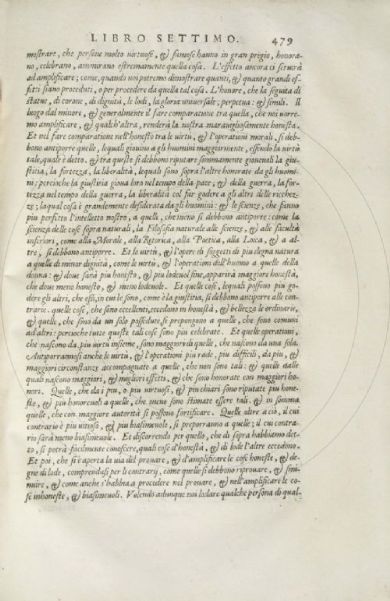 LIBRO SETTIMO. 479
mostrare, che persone molto virtuose, & famose hanno in gran pregio, honora-
no, celebrano, ammirano estremamente quella cosa. L'effetto ancora ci servirà
ad amplificare; come, quando noi potremo dimostrare quanti, & quanto grandi ef-
fetti siano proceduti, o per procedere da quella tal cosa. L'honore, che la seguita di
statue, di corone, di dignità, le lodi, la gloria universale; perpetua: & simili. Il
luogo dal minore, & generalmente il fare comparatione tra quella, che noi vorre-
mo amplificare, & qualch'altra, renderà la nostra maravigliosamente honesta.
Et nel fare comparatione nell'honesto tra le virtù, & l'operationi morali, si deb-
bono anteporre quelle, lequali giovino a gli huomini maggiormente, essendo la virtù
tale, quale è detto. & tra queste si debbono riputare sommamente giovevoli la giu-
stitia, la fortezza, la liberalità, lequali sono sopra l'altre honorate da gli huomi-
ni: percioche la giustitia giova loro nel tempo della pace, & della guerra, la for-
tezza nel tempo della guerra, la liberalità col far godere a gli altri delle ricchez-
ze; laqual cosa è grandemente desiderata da gli huomini: & le scienze, che fanno
piu perfetto l'intelletto nostro, a quelle, che meno si debbono anteporre: come la
scienza delle cose sopra naturali, la Filosofia naturale alle scienze, & alle facultà
inferiori, come alla Morale, alla Retorica, alla Poetica, alla Loica, & a al-
tre, si debbono anteporre. Et le virtù, & l'opere di soggetti di piu degna natura
a quelle di minor dignità, come le virtù, & l'operationi dell'huomo a quelle della
donna: & dove sarà piu honesto, & piu lodevol fine, apparirà maggiore honestà,
che dove meno honesto, & meno lodevole. Et quelle cose, lequali possono piu go-
dere gli altri, che essi, in cui le sono, come è la giustitia, si debbono anteporre alle con-
trarie. quelle cose, che sono eccellenti, eccedono in honestà, & bellezza le ordinarie,
& quelle, che sono da un solo possedute, si prepongono a quelle, che sono comuni
ad altri: percioche tutte queste tali cose sono piu celebrate. Et quelle operationi,
che nascono da piu virtù insieme, sono maggiori di quelle, che nascono da una sola.
Anteporrannosi anche le virtù, & l'operationi piu rade, piu difficili, da piu, &
maggiori circonstanze accompagnate a quelle, che non sono tali: & quelle dalle
quali nascono maggiori, & migliori effetti, & che sono honorate con maggiori ho-
nori. Quelle, che da i piu, o piu virtuosi, & piu chiari sono riputate piu hone-
ste, & piu honorevoli a quelle, che meno sono stimate essere tali. & in somma
quelle, che con maggiore autorità si possono fortificare. Quelle oltre a ciò, il cui
contrario è piu vitioso, & piu biasimevole, si preporranno a quelle; il cui contra-
rio sarà meno biasimevole. Et discorrendo per quello, che di sopra habbiamo det-
to, si potrà facilmente conoscere, quali cose d'honestà, & di lode l'altre eccedano.
Et poi, che si è aperta la via del provare, & d'amplificare le cose honeste, & de-
gne di lode, comprendasi per li contrarij, come quelle si debbono riprovare, & smi-
nuire, & come anche s'habbia a procedere nel provare, & nell'amplificare le co-
se inhoneste, & biasimevoli. Volendo adunque noi lodare qualche persona di qual-